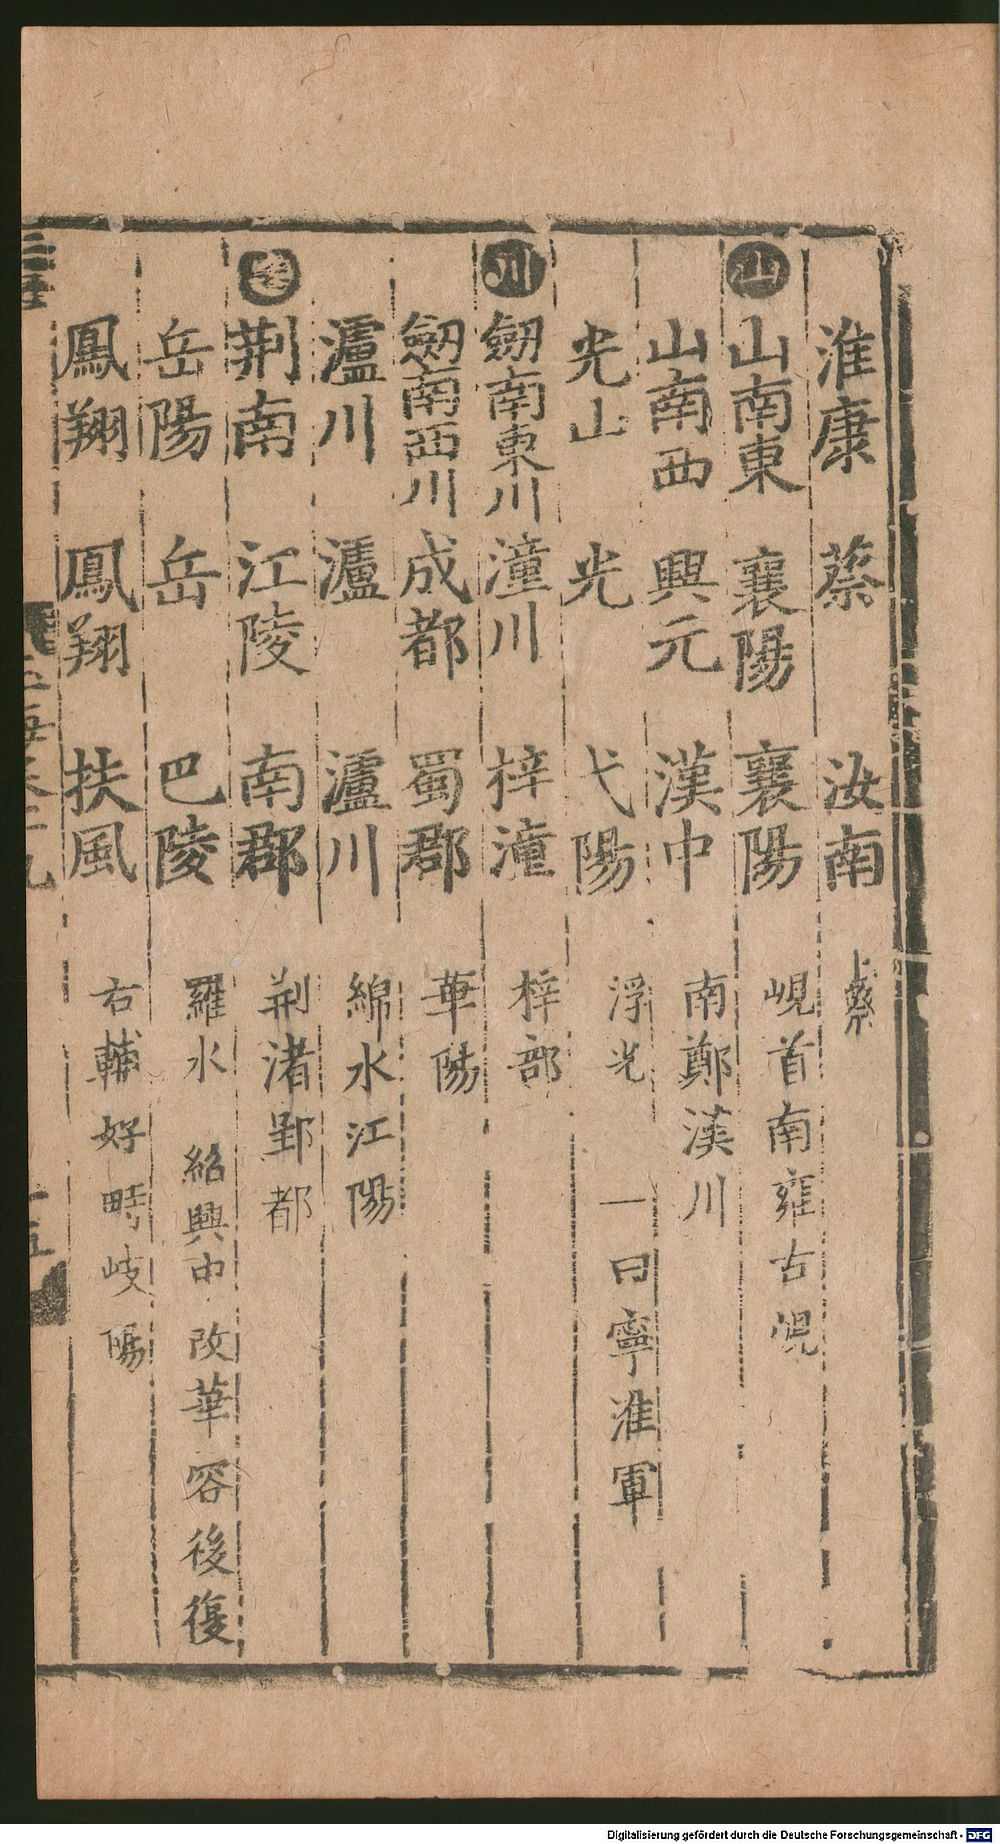 淮康 蔡 汝南 上蔡
山 山南東 襄陽 襄陽 峴首南雍古峴
山南西 興元 漢中 南鄭漢川
光山 光 弋陽 浮光 一曰寧淮軍
川 劒南東川 潼川 梓潼 梓部
劒南西川 成都 蜀郡 華陽
瀘川 瀘 瀘川 綿水江陽
荆南 江陵 南郡 荆渚郢都
岳陽 岳 巴陵 羅水 紹興中改華容後復
鳳翔 鳳翔 扶風 右輔好畤岐陽
Digitalisierung gefördert durch die Deutsche Forschungsgemeinschaft - DFG